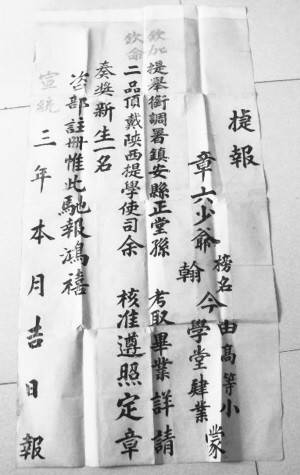 捷報
章六少爺榜名翰今由高等小學堂肄業蒙
欽加提舉銜調署鎮安縣正堂孫 考取畢業詳請
欽命二品頂戴陝西提學使司余 核准遵照定章
奏獎新生一名
咨部註冊惟此馳報鴻禧
宣統三年本月吉日報